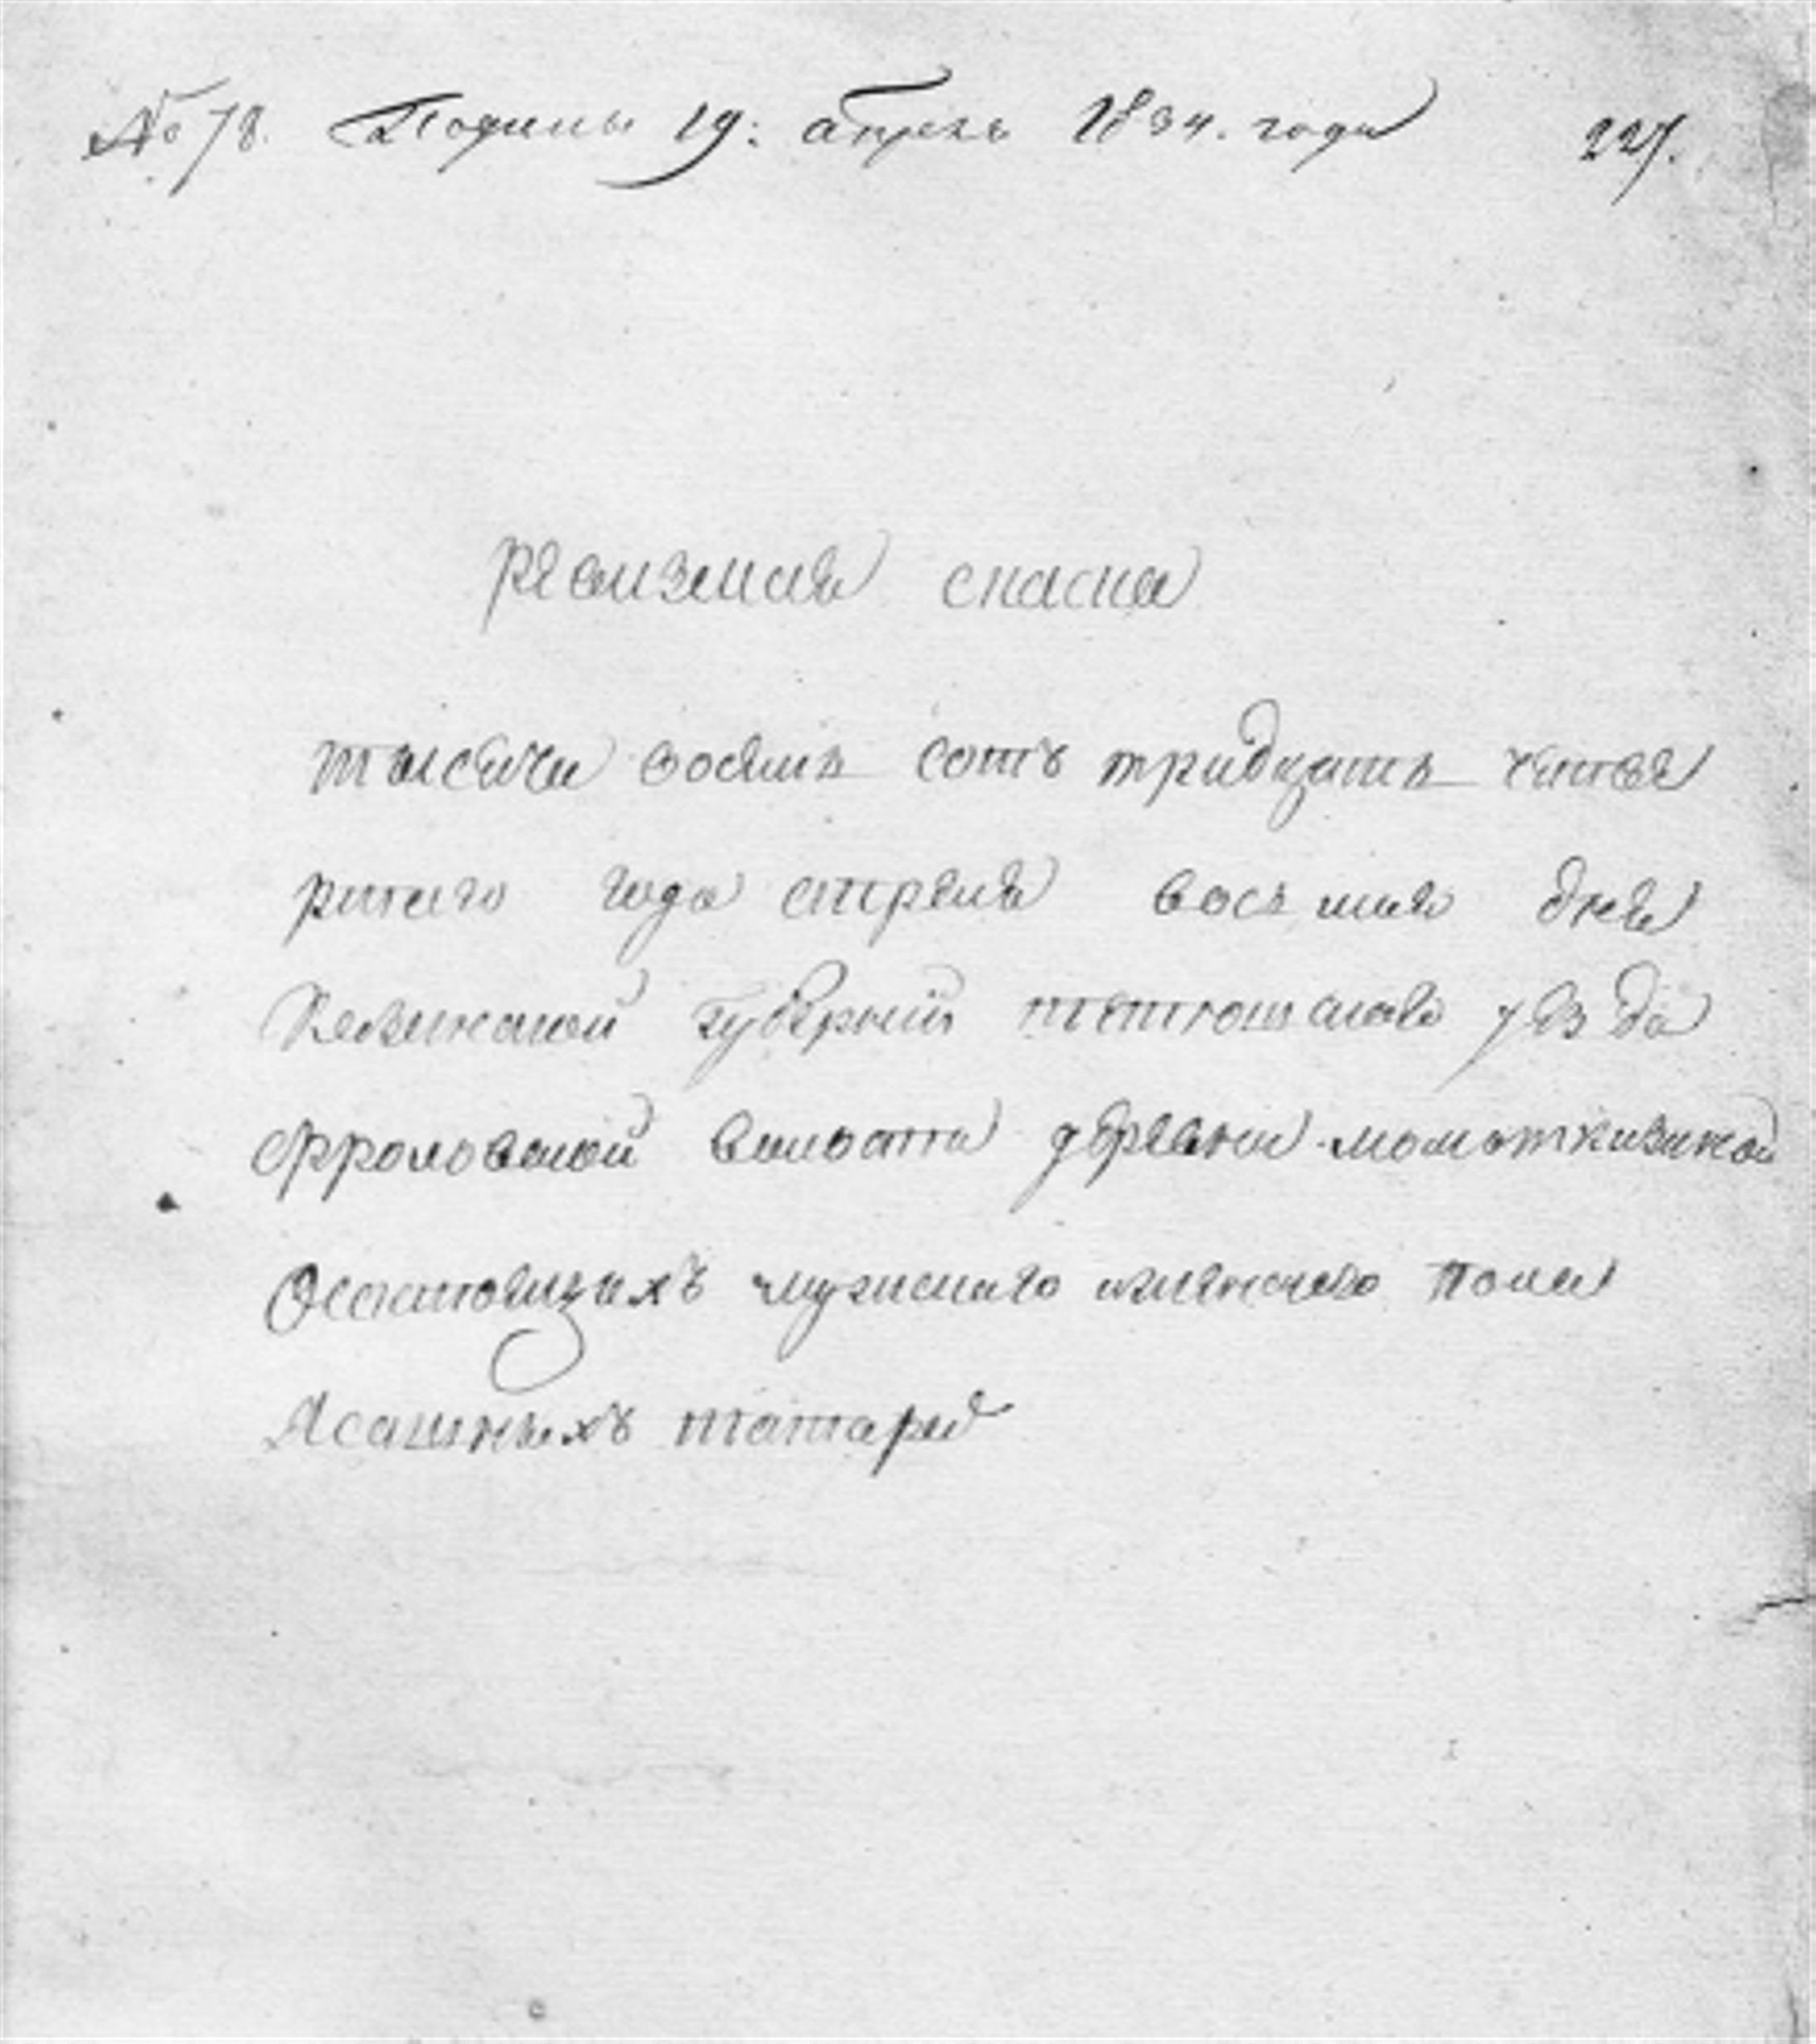 № 78. Подины 19: апрель 1834. года 227.
ревизская скаска
тысяча восемь сотъ тридцать четве
ртаго года апреля восьмаго дня
Казанской губерний тетюшскаго уезда
Фроловской волости деревни момоткозиной
О состоящихъ мужскаго иженскаго пола
Ясашныхъ татаръ